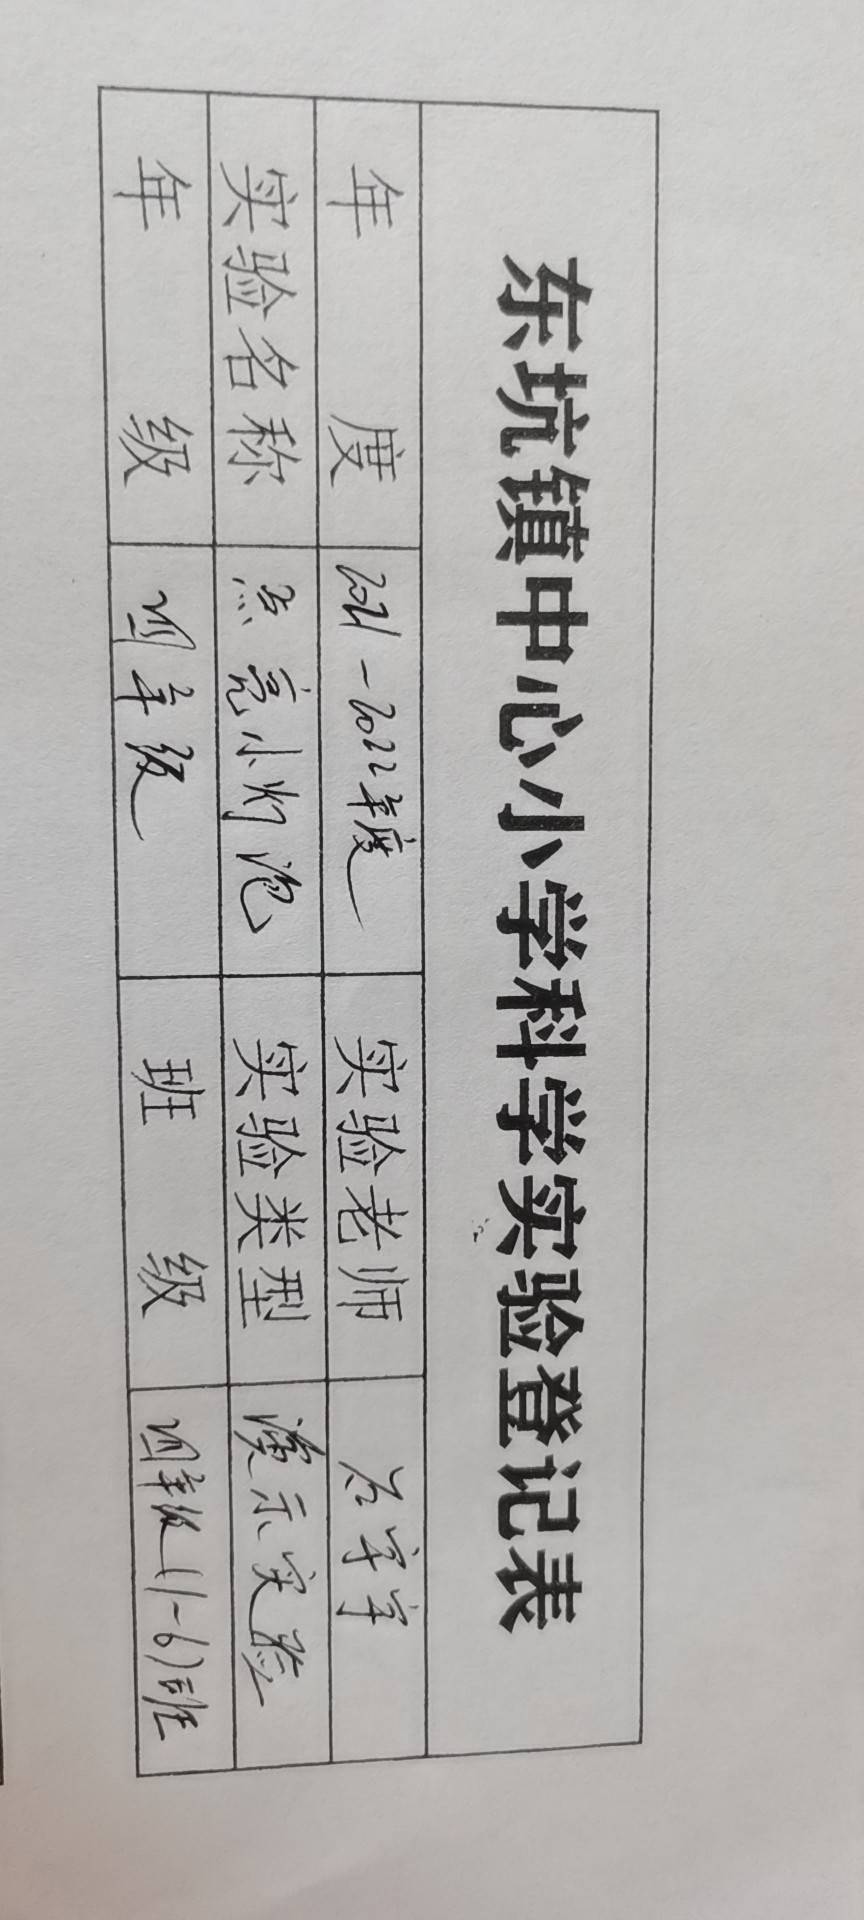 东坑镇中心小学科学实验登记表
年度 2021-2022年度 实验老师
实验名称 点亮小灯泡 实验类型 演示实验
年级 四年级 班级 四年级(1-6)班